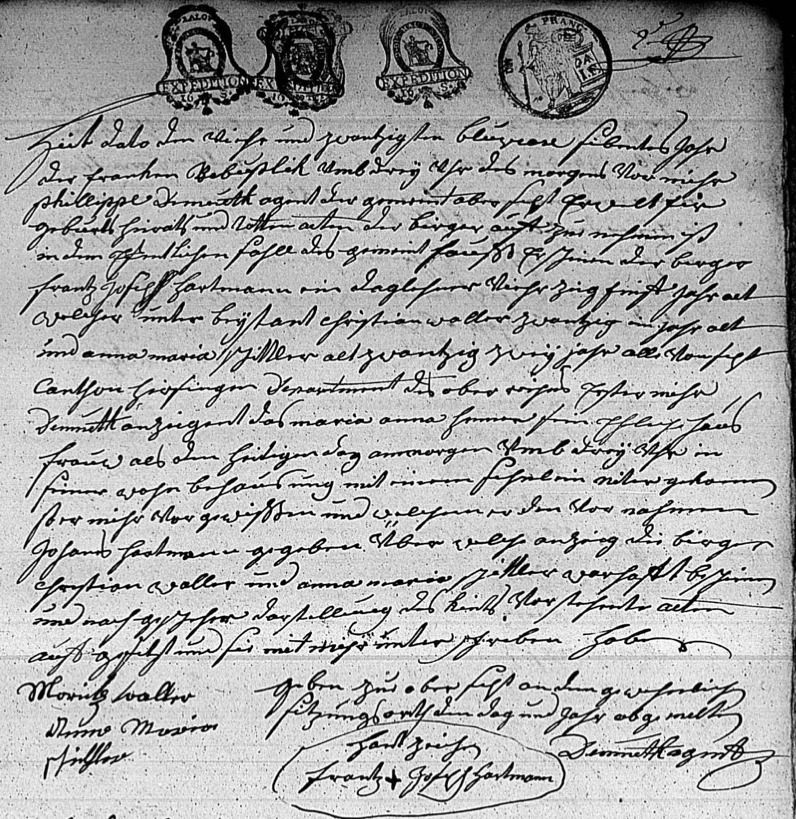 EXPEDITION EXPEDITION EXPEDITION
Heit dato den Viehr und zwantzigsten pluviose sibentes Jahr
der francken Rebublick Umb drey Uhr des morgens Vor miehr
phillippe Demuth agent der gemeint ober sept Erwelt fir
geburts heirats und totten acten der birger auff zu nehmen ist
in dem offentlichen sahle des gemeint hausses Erschinen der birger
frantz Joseph Hartmann ein daglehner Viehrzig finff Jahr alt
welcher unter beystant christian waller zwantzig ein jahr alt
und anna maria schittler alt zwantzig zwey jahr alle Von sept
canthon hirsingen Departement des ober reihns
Demuth anzeigent das maria anna sein Ehlich haus
frauw als den heitigen dag am morgen Umb drey Uhr in
seiner wohn behausung mit einem sehnlein niter gekomen
miehr Vor gewissen und welchem er den Vor nahmen
Johans hartmann gegeben Uber welche anzeig die birger
christian waller und anna maria schittler warhafft
und nach geschehner darstellung des kints Vorstehente acten
auff gesetzt und sie mit miehr unter schriben haben
Moritz waller
Anna Maria
schittler
geben zu ober sept an dem gewehnlich
sitzungs orth den dag und Jahr ob gemelten
hant zeichen
frantz + Joseph Hartmann
Demuth agent